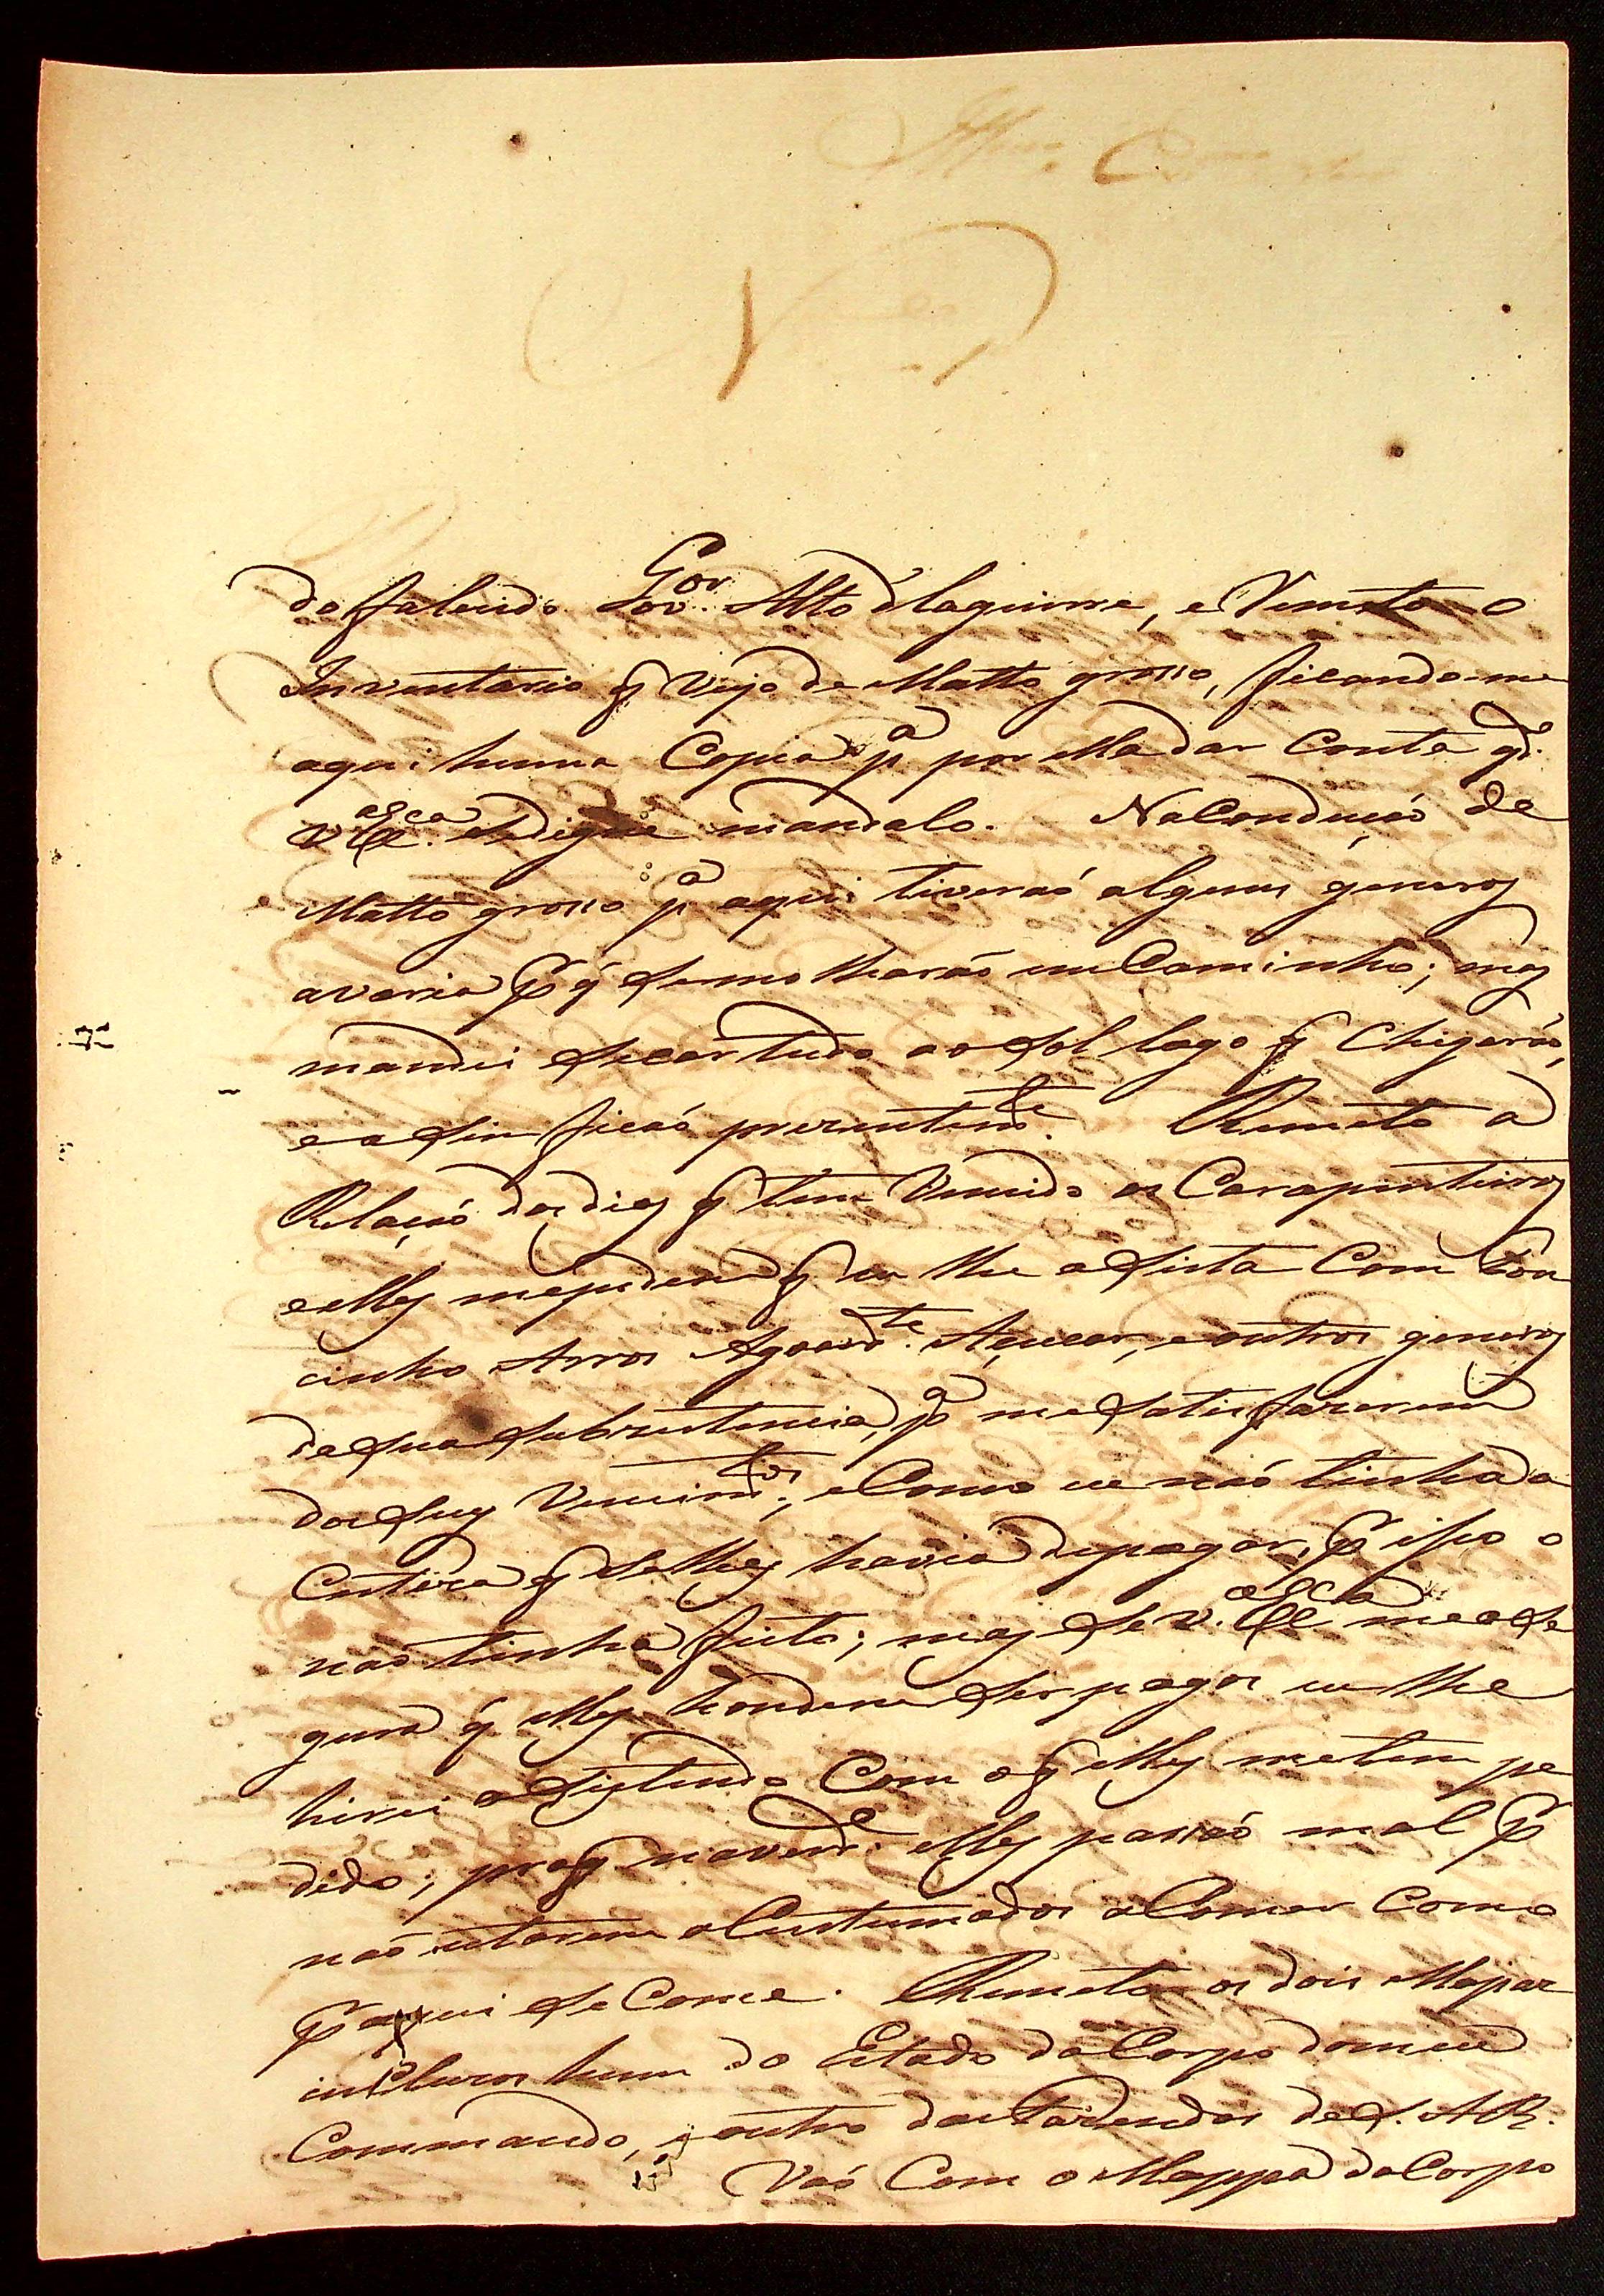 do falecido Gov.or Alto d'laguirre, e Remeto o
Inventario q̃ Vejo de Matto grosso, ficando-me
aqui huma Copia p.a por ella dar Conta q.do
V. Ex.ca Sedigne mandalo. NaConduçaõ de
Matto grosso p.a aqui tiveraõ alguns generos
avaria p.r q̃ semolharaõ em Caminho; mas
mandei secar tudo ao Sol logo q̃ Chegaraõ,
e asim ficaõ prezentem.te Remeto a
Relaçaõ dos dias q̃ tem Vencido os Carapinteiros
e elles mepedem q̃ eu lhe asista Com tou
cinho Arros Agoard.te Açucar, e outros generos
desua subzistencia, p.a mesatisfazerem
dos seus Vencim.tos, e Como eu naõ tinha a
Certeza q̃ selhes havia depagar, p.r isso o
naõ tinha feito; mas se V. Ex.ca mease
gura q̃ elles hondem ser pagos eu lhe
hirei asistindo Com oq̃ elles metem pe
dido; porq̃ naverd.e elles passaõ mal p.r
naõ estarem aCustumados aComer Como
p.r aqui se Come. Remeto os dois Mapas
incluzos hum do Estado doCorpo domeu
Commando, e outro dasFazendas deS. A R.
Vaõ Com o Mappa doCorpo